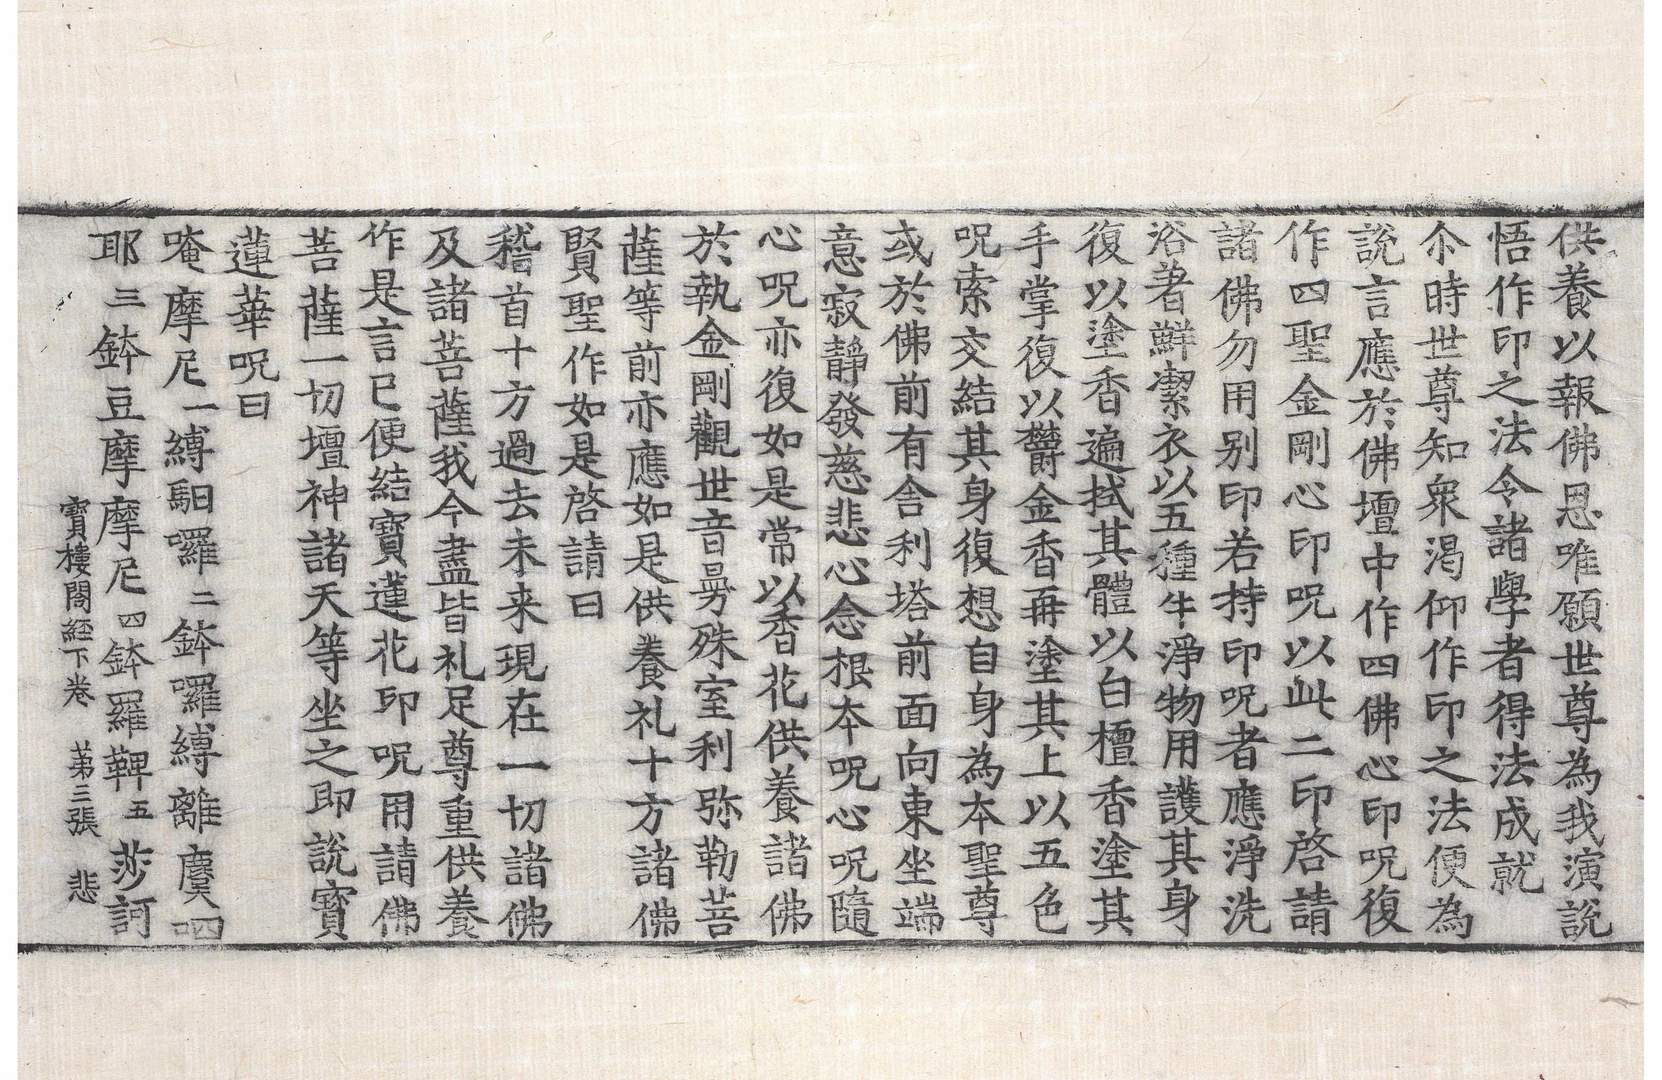 供養以報佛恩唯願世尊為我演說
悟作印之法令諸學者得法成就
尒時世尊知衆渴仰作印之法便為
說言應於佛壇中作四佛心印呪復
作四聖金剛心印呪以此二印啓請
諸佛勿用别印若持印呪者應淨洗
浴著鮮潔衣以五種牛淨物用護其身
復以塗香遍拭其體以白檀香塗其
手掌復以欝金香再塗其上以五色
呪索交結其身復想自身為本聖尊
或於佛前有舎利塔前面向東坐端
意寂靜發慈悲心念根本呪心呪隨
心呪亦復如是常以香花供養諸佛
於執金剛觀世音曼殊室利弥勒菩
薩等前亦應如是供養礼十方諸佛
賢聖作如是啓請曰
稽首十方過去未来現在一切諸佛
及諸菩薩我今盡皆礼足尊重供養
作是言已便結寶蓮花印呪用請佛
菩薩一切壇神諸天等坐之即說寶
蓮華呪曰
唵摩尼一縛馹囉二鉢囉縛離虞呬
耶三鉢豆摩摩尼四鉢羅鞞五莎訶
寶樓閣經下卷 苐三張 悲